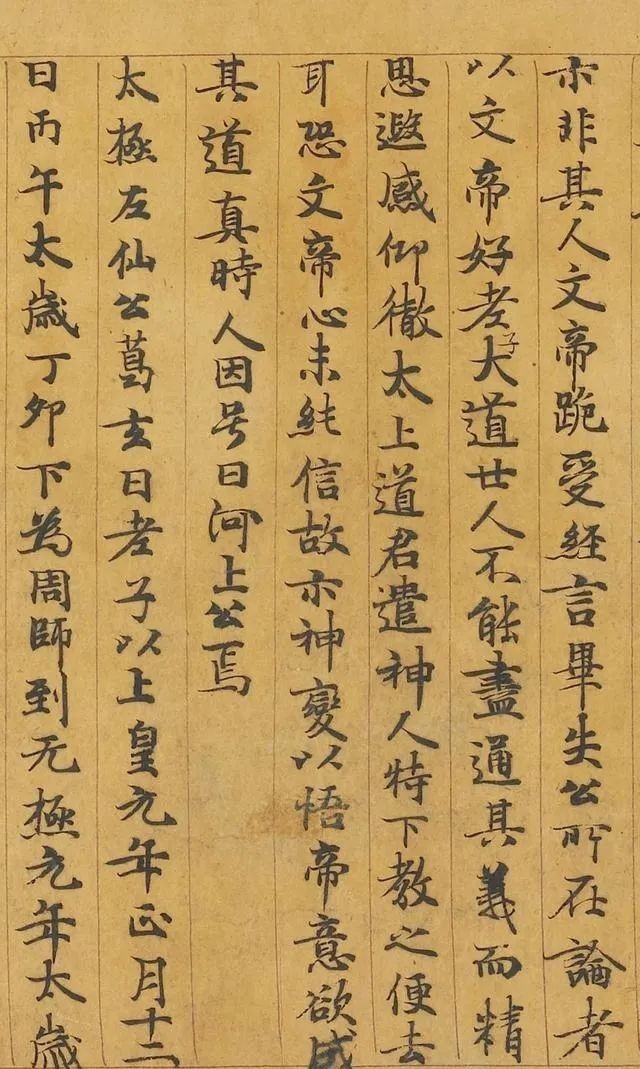 亦非其人文帝跪受經言畢失公所在論者
以文帝好老子大道世人不能盡通其義而精
思遐感仰徹太上道君遣神人特下教之便去
耳恐文帝心未純信故示神變以悟帝意欲成
其道真時人因号曰河上公焉
太極左仙公葛玄曰老子以上皇元年正月十二
日丙午太歲丁卯下為周師到无極元年太歲